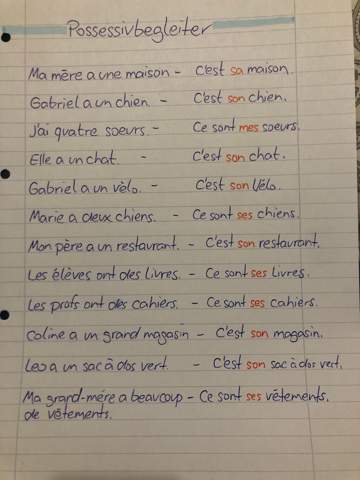 Possessivbegleiter
Ma mère a une maison - C'est sa maison.
Gabriel a un chien. - C'est son chien.
J'ai quatre soeurs. - Ce sont mes soeurs.
Elle a un chat. - C'est son chat.
Gabriel a un vélo. - C'est son vélo.
Marie a deux chiens. - Ce sont ses chiens.
Mon père a un restaurant. - C'est son restaurant.
Les élèves ont des livres. - Ce sont ses livres.
Les profs ont des cahiers. - Ce sont ses cahiers.
Coline a un grand magasin - C'est son magasin.
Leo a un sac à dos vert. - C'est son sac à dos vert.
Ma grand-mère a beaucoup - Ce sont ses vêtements.
de vêtements.